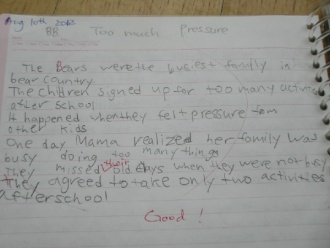 Aug 10th 2013
BB Too much Pressure
The Bears were the busiest family in
bear country
The children signed up for too many activities
after school
It happened when they felt pressure from
other kids
One day Mama realized her family was
busy doing too many things
They missed their old days when they were not busy
They agreed to take only two activities
after school
Good!